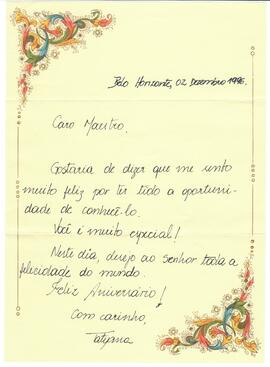 Belo Horizonte, 02 Dezembro 1996.
Caro Maestro,
Gostaria de dizer que me sinto
muito feliz por ter tido a oportuni-
dade de conhecê-lo.
Você é muito especial!
Neste dia, desejo ao senhor toda a
felicidade do mundo.
Feliz Aniversário!
Com carinho,
Tatyana